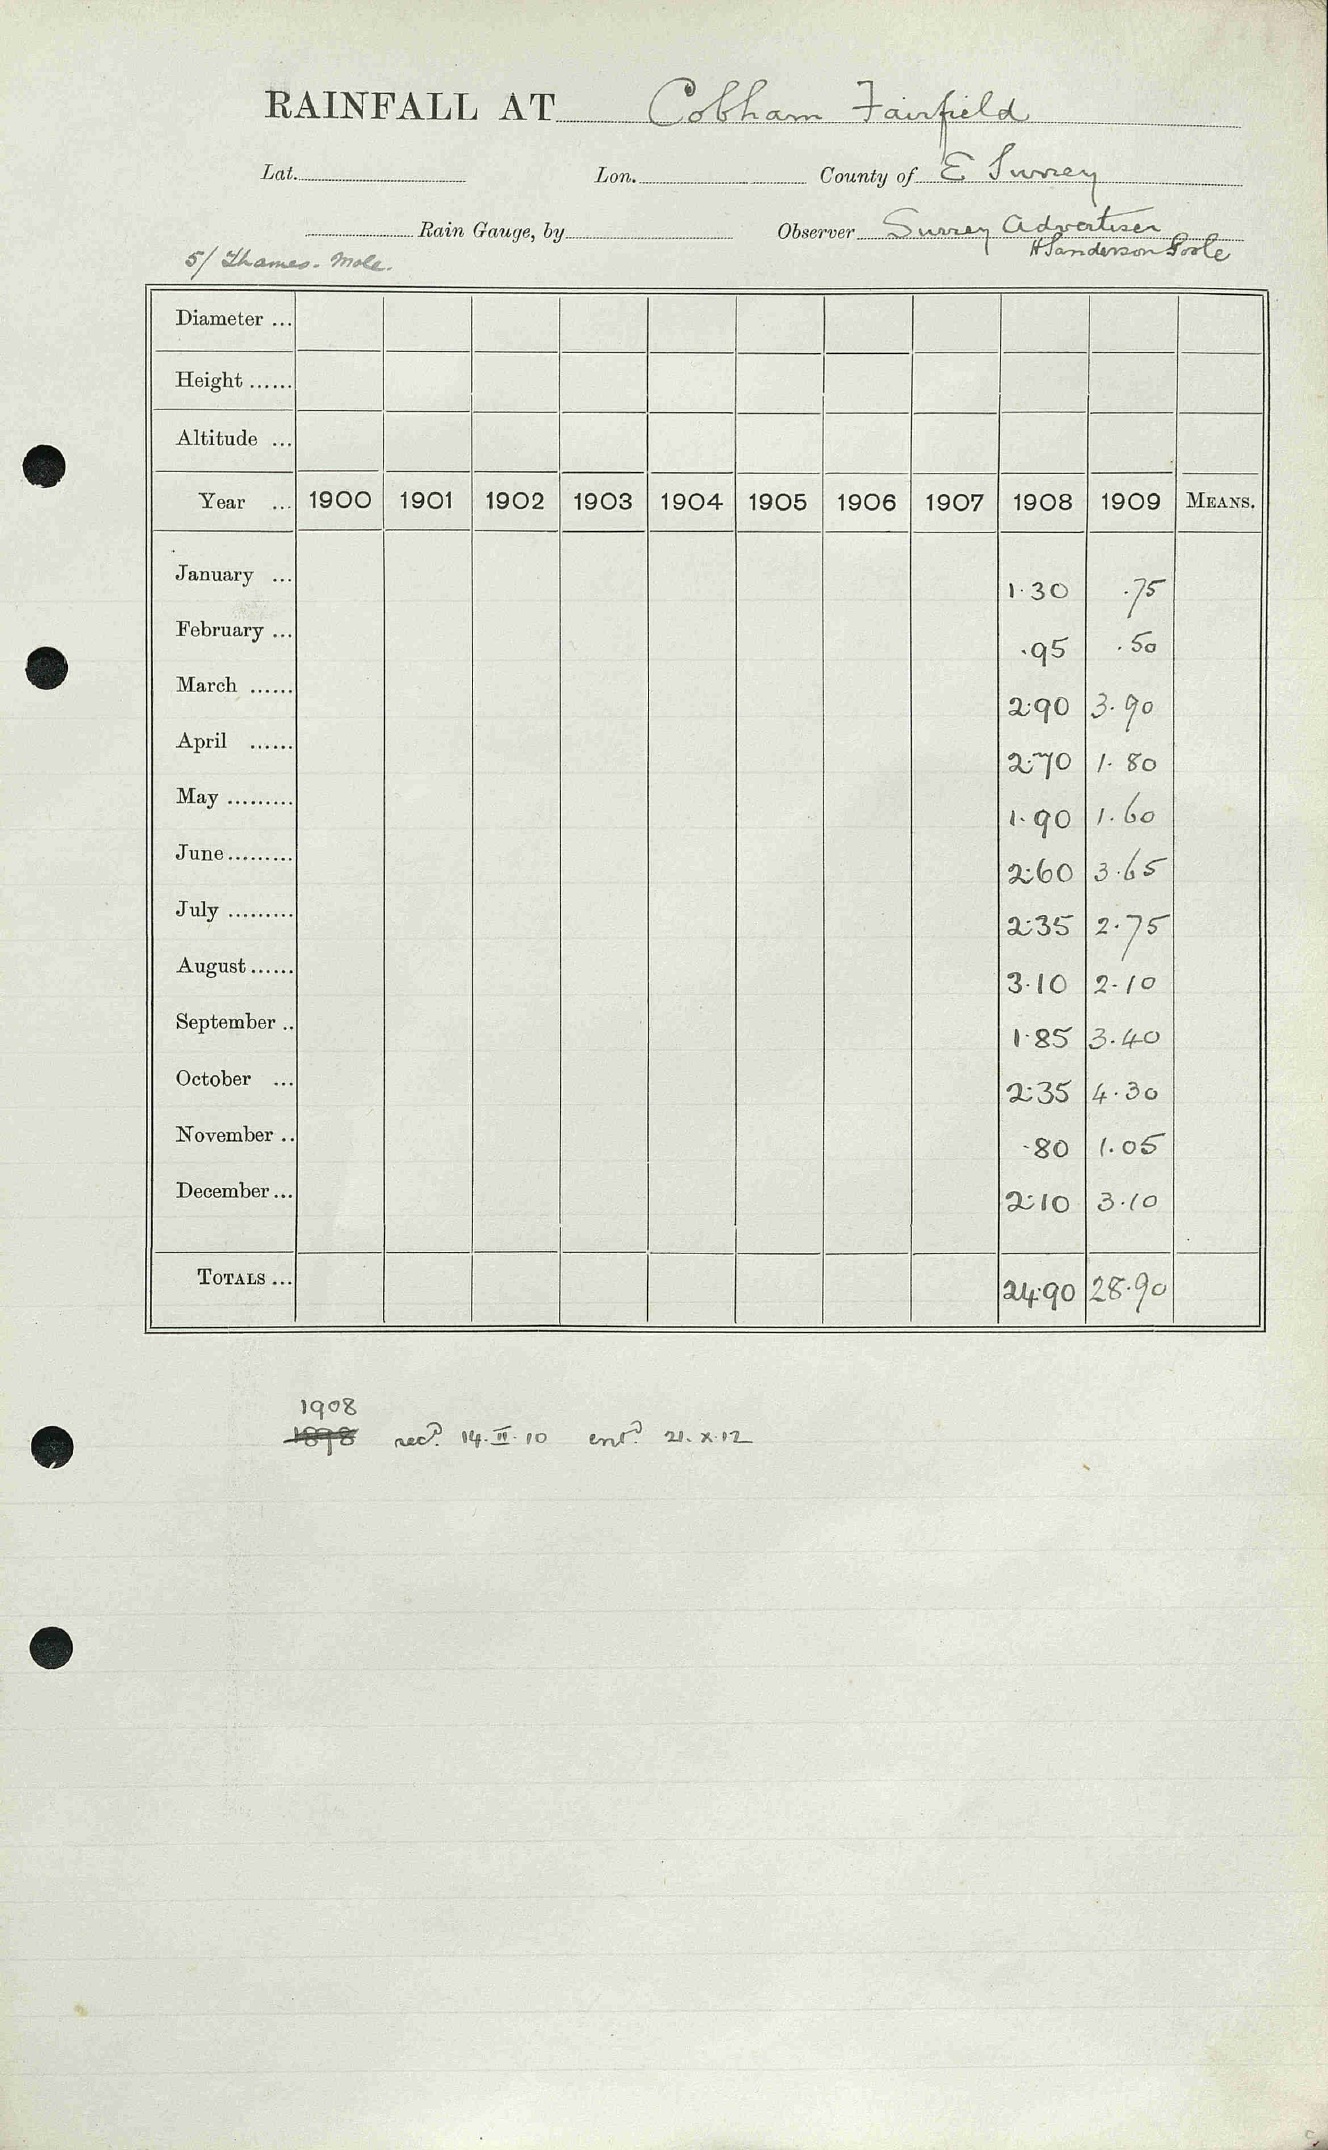 RAINFALL AT Cobham Fairfield
Lat. Lon. County of E Surrey
Rain Gauge, by Observer Surrey Advertiser
H Sanderson Poole
5/ Thames. Mole.
Diameter ...
Height ......
Altitude ...
Year ... 1900 1901 1902 1903 1904 1905 1906 1907 1908 1909 MEANS.
January ... 1.30 .75
February ... .95 .50
March ...... 2.90 3.90
April ...... 2.70 1.80
May ......... 1.90 1.60
June ......... 2.60 3.65
July ......... 2.35 2.75
August ...... 3.10 2.10
September .. 1.85 3.40
October ... 2.35 4.30
November .. .80 1.05
December ... 2.10 3.10
TOTALS ... 24.90 28.90
1908
1898 recd. 14.II.10 entd. 21.X.12